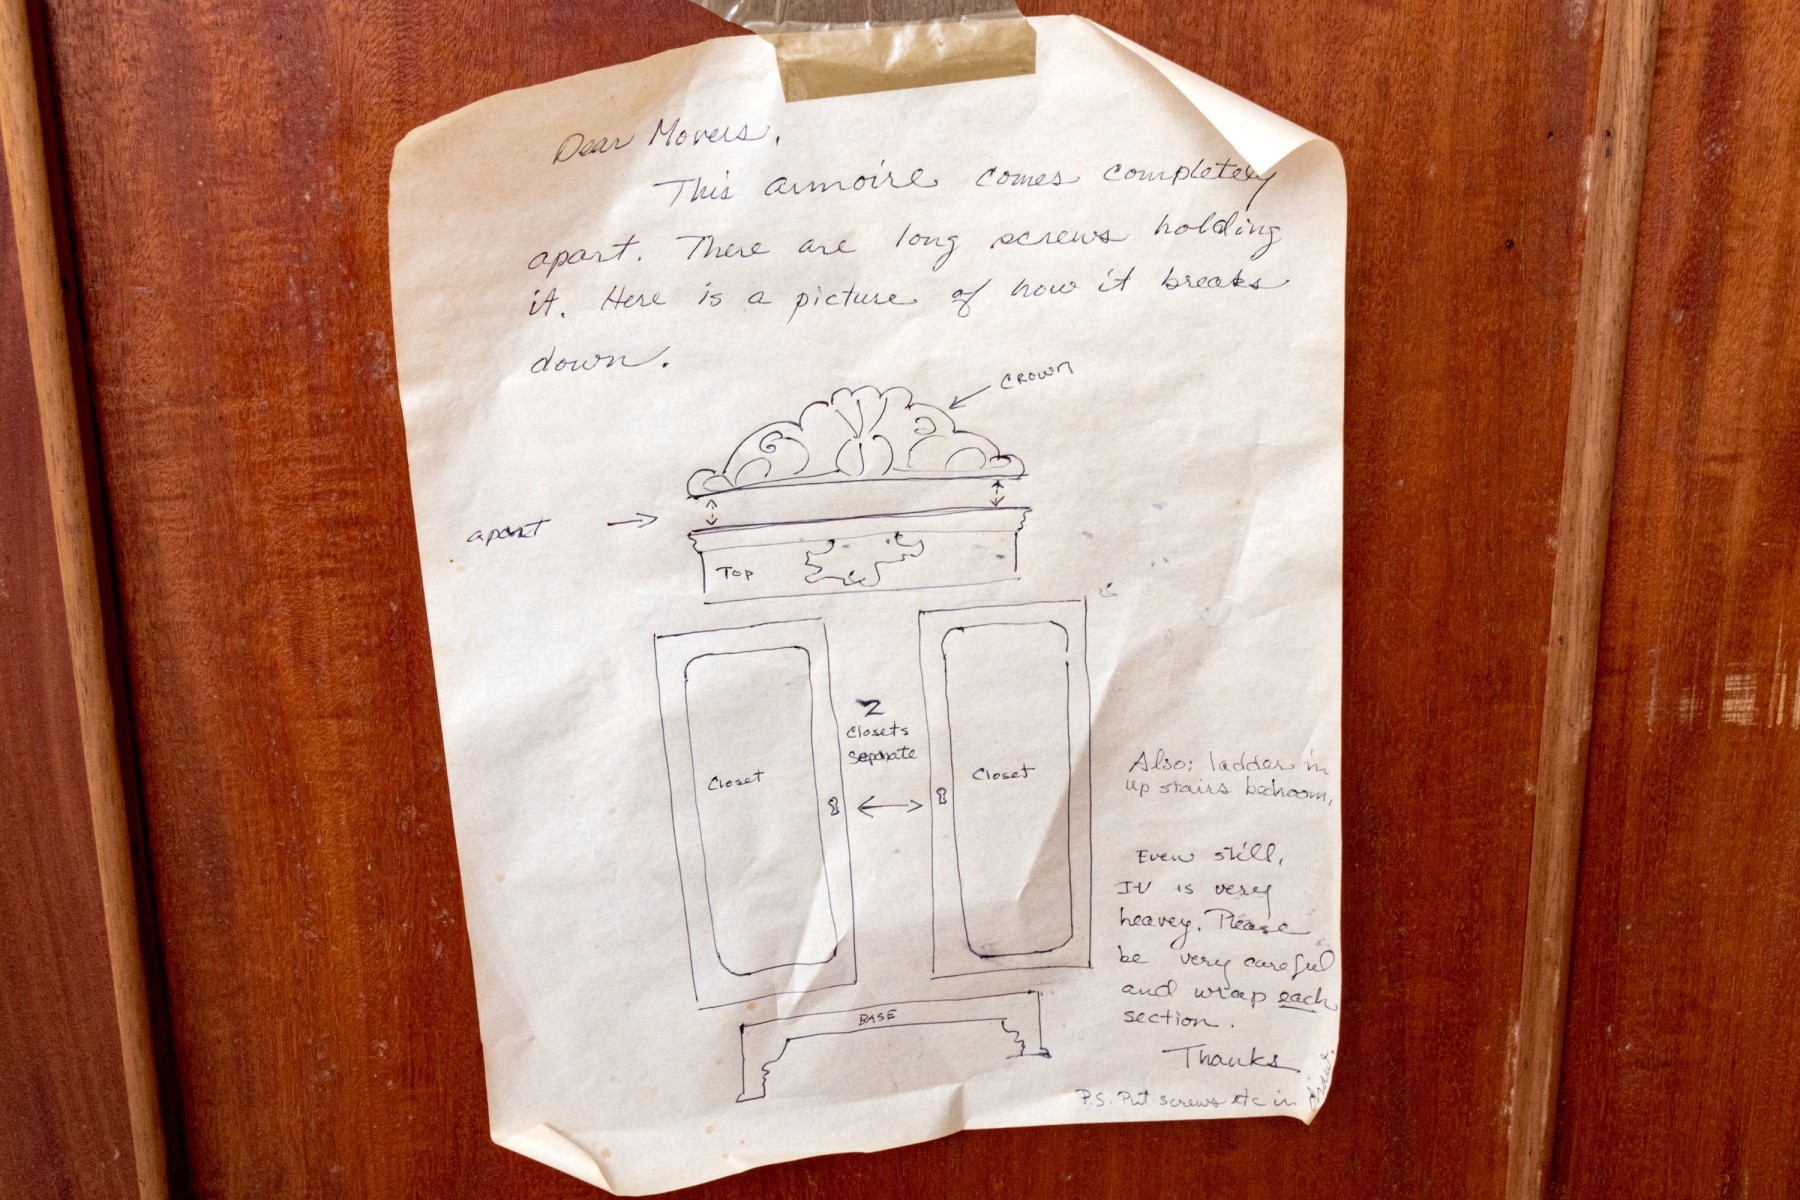 Dear Movers,
This armoire comes completely
apart. There are long screws holding
it. Here is a picture of how it breaks
down.
CROWN
apart
TOP
2
Closets
Separate
Closet
Closet
Also; ladder in
up stairs bedroom,
Even still,
It is very
heavey. Please
be very careful
and wrap each
section.
BASE
Thanks
P.S. Put screws etc in